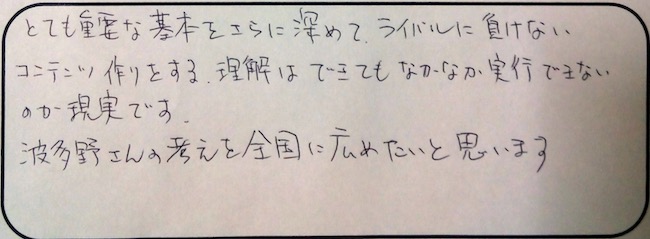 とても重要な基本をさらに深めて、ライバルに負けない
コンテンツ作りをする、理解はできてもなかなか実行できない
のが現実です。
波多野さんの考えを全国に広めたいと思います